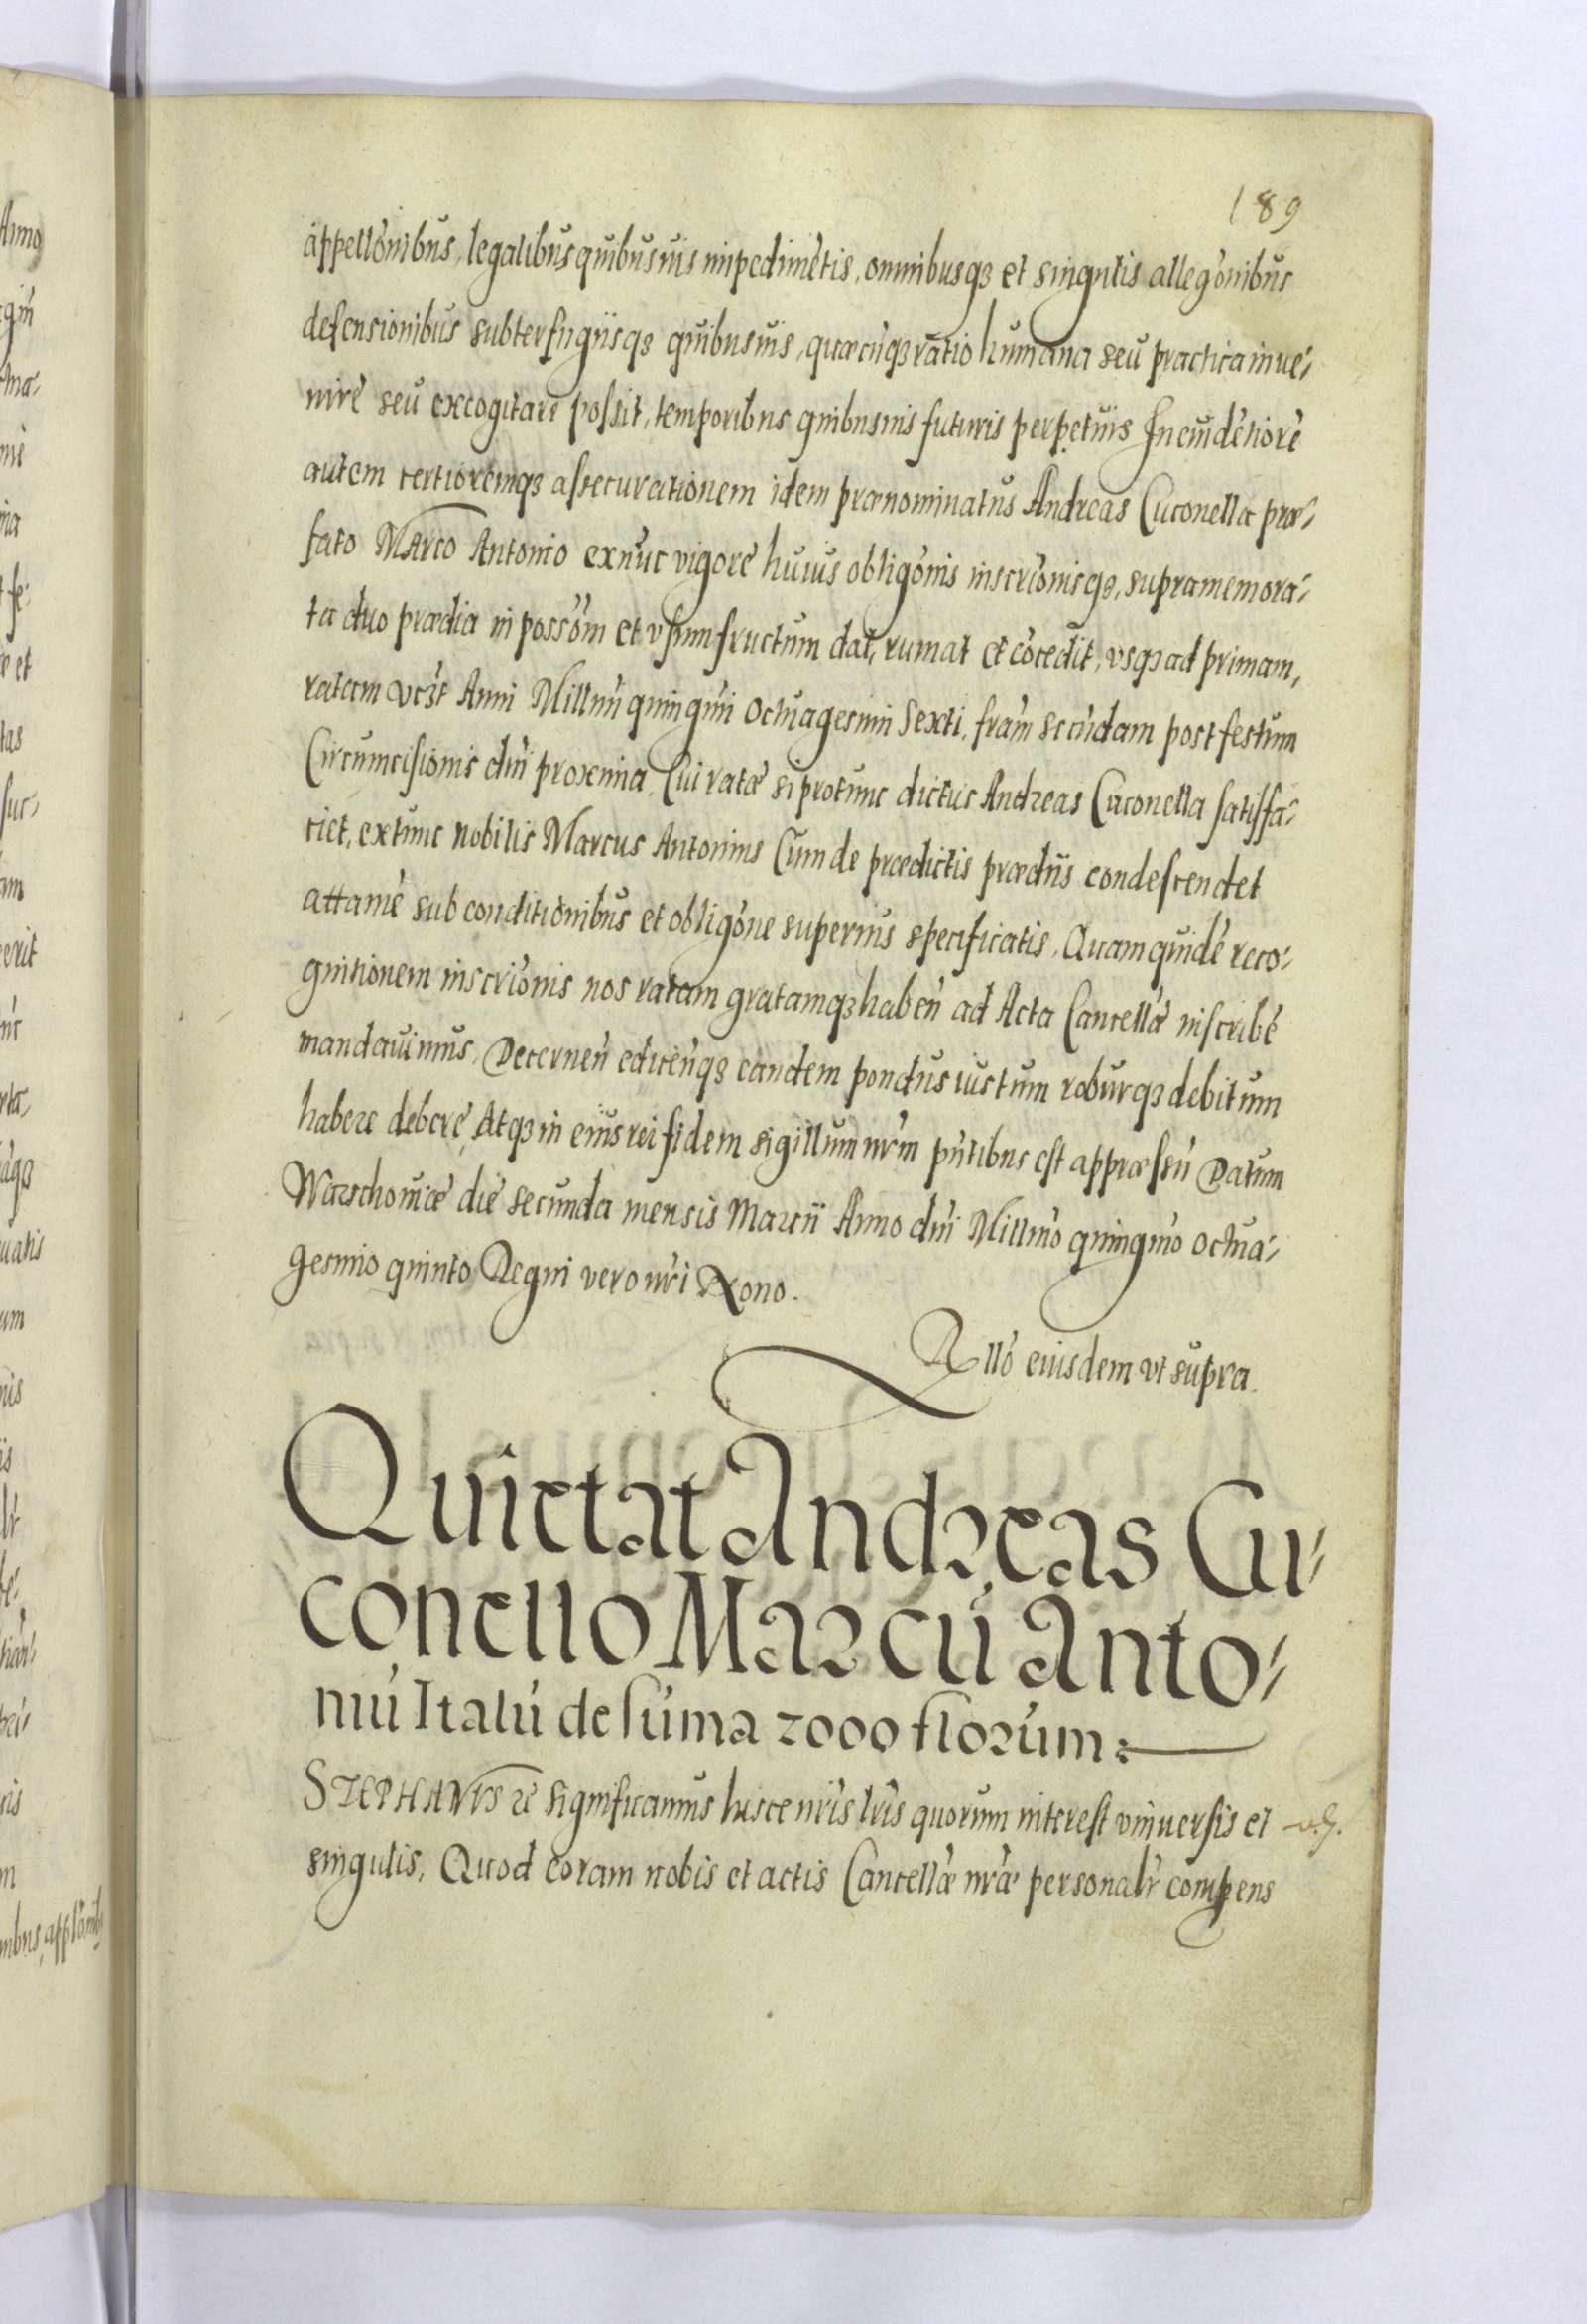 189
appellonibus, legalibus quibusuis impedimētis, omnibusqȝ et singulis allegonibus
defensionibus subterfugiisqȝ quibusuis, quæcūqȝ ratio humana seu practica inue-
nire seu excogitare possit, temporibus quibusuis futuris perpetuis In euidētiore
autem certioremqȝ assecurationem idem prænominatus Andreas Cuconella præ-
fato Marco Antonio exnūc vigore huius obligonis inscrionisqȝ, supramemora-
ta duo prædia in possom et vsumfructum dat, rumat et cōcedit, vsqȝ ad primam,
ratam vcȝt Anni Millmi quingmi Octuagesimi Sexti, fram secūdam post festum
Circumcisionis dni proxima, Cui ratæ si protunc dictus Andreas Cuconella satisfa-
ciet, extunc nobilis Marcus Antonius Cum de prædictis prædiis condescendet
attamē sub conditionibus et obligone superius specificatis, Quam quidē reco-
gnitionem inscrionis nos ratam gratamqȝ haben ad Acta Cancellæ inscribē
mandauimus, Decernen edicenqȝ eandem pondus iustum roburqȝ debitum
habere debere, Atqȝ in eius rei fidem sigillum nrm pntibus est appræssū Datum
Warschouiæ die secunda mensis Marcii Anno dni Millmo quingmo octua-
gesimo quinto Regni vero nri Nono.
Rllo eiusdem vt supra.
Quietat Andreas Cu-
conello Marcū Anto-
niū Italū de sūma 2000 florum:
STEPHANVS ꝛc significamus hisce nris lris quorum interest vniuersis et
singulis, Quod coram nobis et actis Cancellæ nræ personalr compens